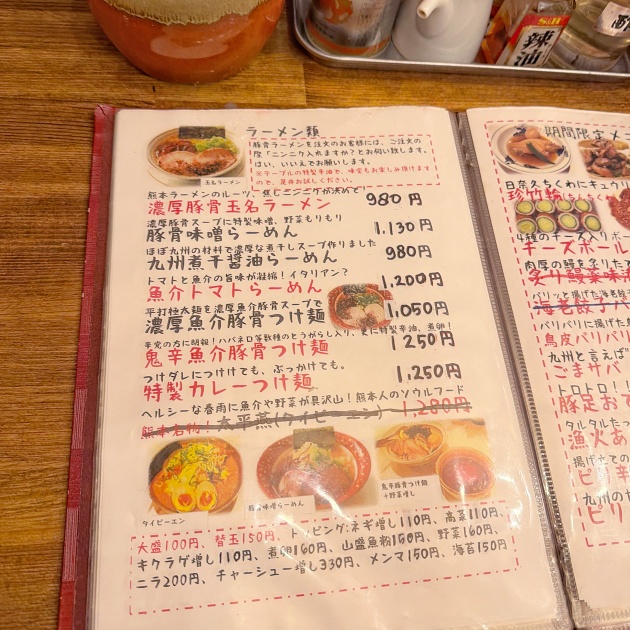 S&B
辣油
ラーメン類
豚骨ラーメンを注文のお客様には、ご注文の
際「ニンニク入れますか?とお伺い致します。
はい、いいえでお願いします。
※テーブルの特製辛油で、味変もお楽しみ頂けます
ので、是非お試しください。
玉名ラーメン
熊本ラーメンのルーツ。焦しニンニクが決めて!
濃厚豚骨玉名ラーメン 980円
濃厚豚骨スープに特製味噌、野菜もりもり
豚骨味噌らーめん 1,130円
ほぼ九州の材料で濃厚な煮干しスープ作りました
九州煮干醤油らーめん 980円
トマトと魚介の旨味が凝縮!イタリアン?
魚介トマトらーめん 1,200円
平打極太麺を濃厚魚介豚骨スープで
濃厚魚介豚骨つけ麺 1,050円
辛党の方に朗報!ハバネロ等数種のとうがらし入り、更に特製辛油、煮卵!
鬼辛魚介豚骨つけ麺 1250円
つけダレにつけても、ぶっかけても。
特製カレーつけ麺 1,250円
ヘルシーな春雨に魚介や野菜が具沢山!熊本人のソウルフード
熊本名物!太平燕(タイピーエン) 1,280円
タイピーエン
豚骨味噌らーめん
鬼辛豚骨つけ麺
+野菜増し
大盛100円、替玉150円、トッピング:ネギ増し110円、高菜110円、
キクラゲ増し110円、煮卵160円、山盛魚粉150円、野菜160円、
ニラ200円、チャーシュー増し330円、メンマ150円、海苔150円
期間限定メニ
日奈久ちくわにキュウリ
珍竹輪
4種のチーズ入りボー
チーズボール
肉厚の鰻を炙りたて
炙り鰻薬味
パリッと揚げた海老餃子
海老餃子
パリパリに揚げた鳥
鳥皮パリパリ
九州と言えば
ごまサバ
トロトロ!
豚足おで
タルタルたっ
漁火あ
揚げたての
ピリ辛
九州の
ピリ